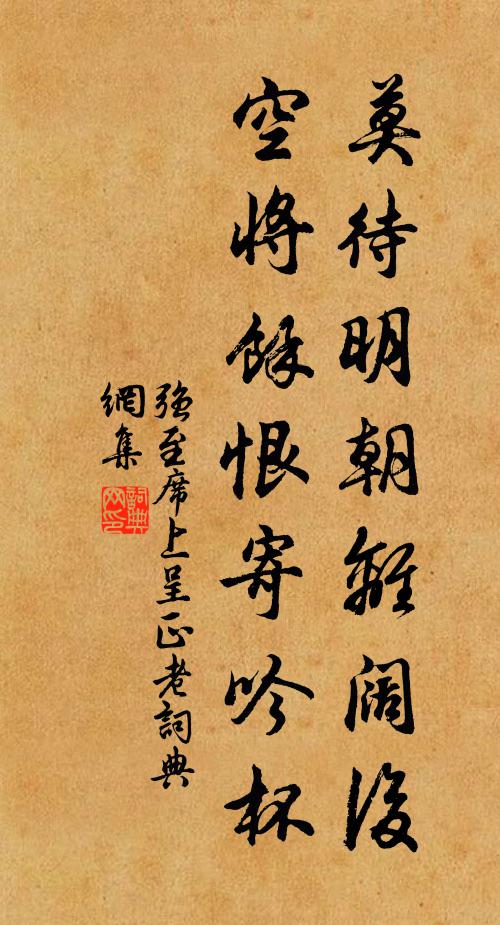 莫待明朝離闊後
空將餘恨寄吟杯
強至席上呈正老詞典
網集
詞典
网印